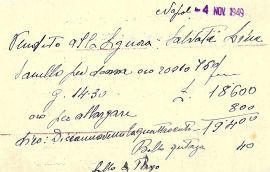 Napoli - 4 NOV. 1949
Venduto alla Signora - Salvati Lina
Anello per donna oro rosso 750
g. 14.30 £. 18600
oro per allargare 800
dico: Diciannovemilaquattrocento = 19400
Bollo quietanza 40